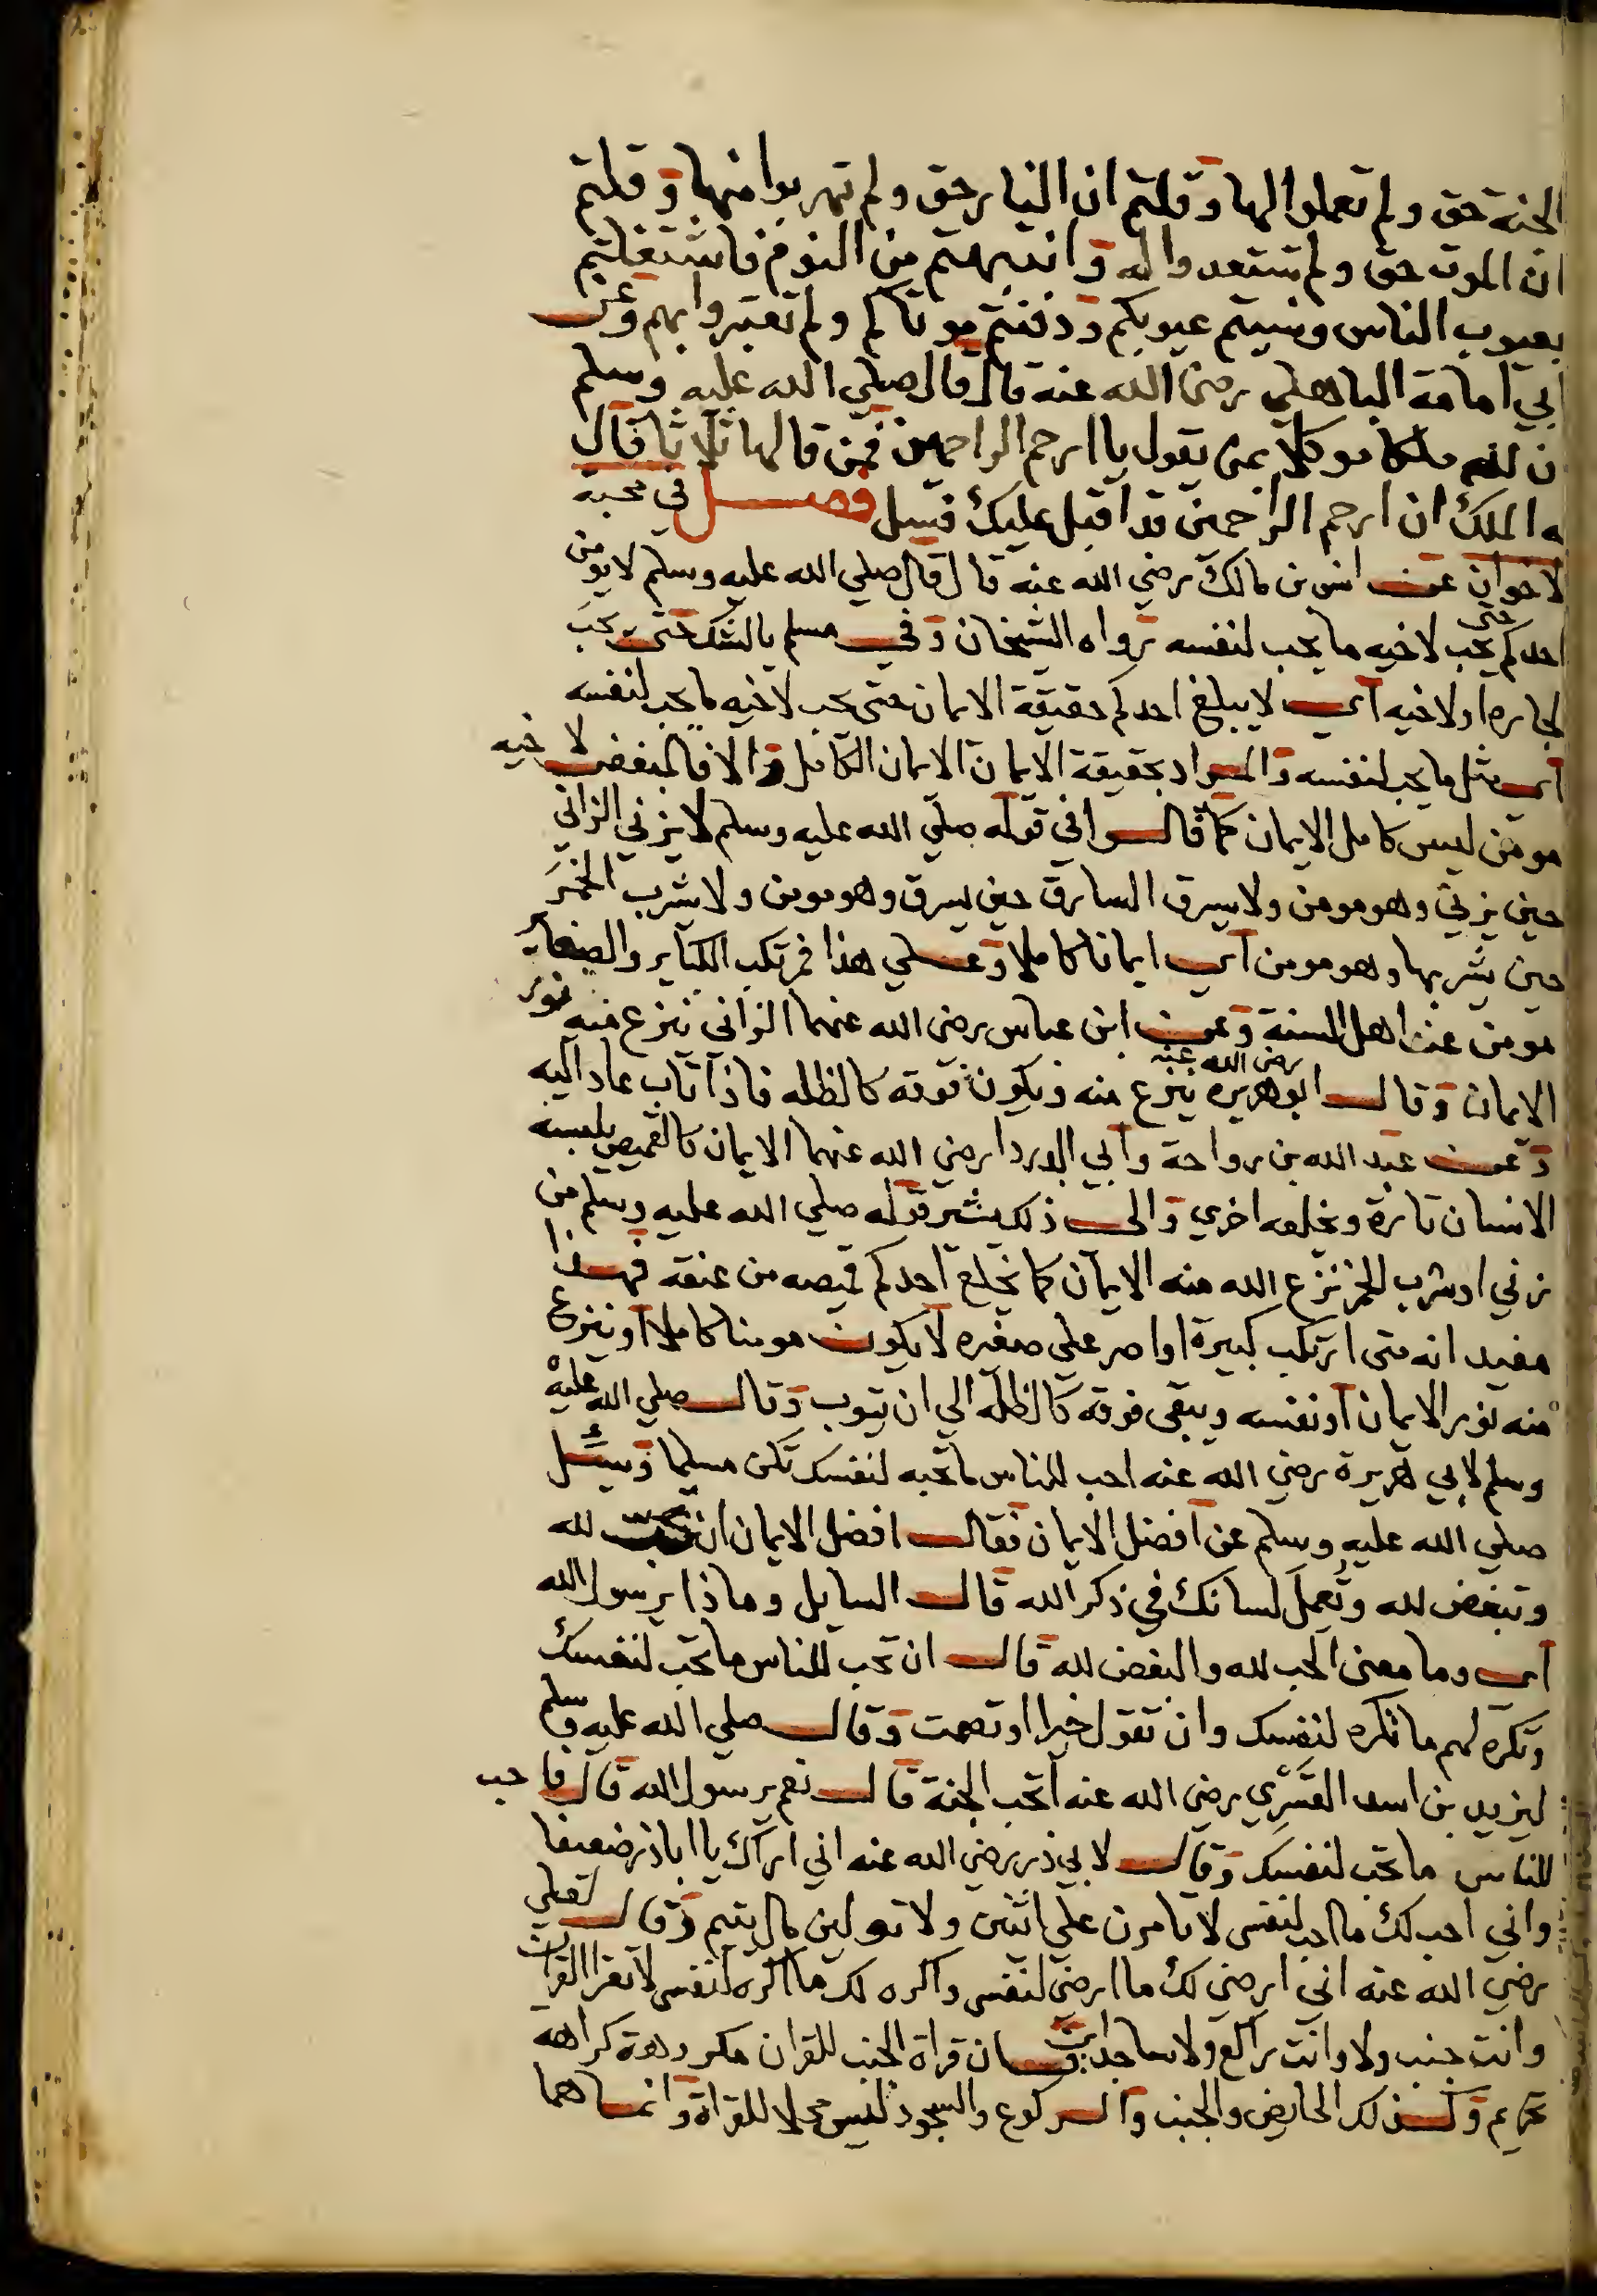 الجنة حق ولم تعملوا لها وقلتم ان النار حق ولم تهربوا منها وقلتم
ان الموت حق ولم تستعدوا له وانتبهتم من النوم فاشتغلتم
بعيوب الناس ونسيتم عيوبكم ودفنتم موتاكم ولم تعتبروا بهم وعن
ابي امامة الباهلي رضي الله عنه قال قال صلي الله عليه وسلم
ن لله ملكا موكلا بمن يقول يا ارحم الراحمين فمن قالها ثلاثا قال
له الملك ان ارحم الراحمين قد اقبل عليك فسل فصل في محبة
لاخوان عن انس بن مالك رضي الله عنه قال قال صلي الله عليه وسلم لا يومن
احدكم حتى يحب لاخيه ما يحب لنفسه رواه الشيخان وفي مسلم بالشك حتى يحب
لجاره او لاخيه اي لا يبلغ احدكم حقيقة الايمان حتى يحب لاخيه ما يحب لنفسه
اي مثل ما يحب لنفسه والمراد بحقيقة الايمان الايمان الكامل والا فالمبغض لاخيه
مومن ليس كامل الايمان كما قالوا في قوله صلي الله عليه وسلم لا يزني الزاني
حين يزني وهو مومن ولا يسرق السارق حين يسرق وهو مومن ولا يشرب الخمر
حين يشربها وهو مومن اي ايمانا كاملا وعلي هذا فمرتكب الكباير والصغاير
مومن عند اهل السنة وعن ابن عباس رضي الله عنهما الزاني ينزع منه نور
الايمان وقال ابو هريره رضي الله عنه ينزع منه ويكون فوقه كالظله فاذا تاب عاد اليه
وعن عبد الله بن رواحة وابي الدردا رضي الله عنهما الايمان كالقميص يلبسه
الانسان تارة ويخلعه اخري والي ذلك يشير قوله صلي الله عليه وسلم من
زني او شرب الخمر نزع الله منه الايمان كما يخلع احدكم قميصه من عنقه فهذا
مفيد انه متى ارتكب كبيرة او اصر علي صغيره لا يكون مومنا كاملا او ينزع
منه نور الايمان او نفسه ويبقى فوقه كالظله الي ان يتوب وقال صلي الله عليه
وسلم لابي هريرة رضي الله عنه احب للناس ما تحبه لنفسك تكن مسلما وسئل
صلي الله عليه وسلم عن افضل الايمان فقال افضل الايمان ان تحب لله
وتبغض لله وتعمل لسانك في ذكر الله قال السايل وماذا يرسول الله
اي وما معنى الحب لله والبغض لله قال ان تحب للناس ما تحب لنفسك
وتكره لهم ما تكره لنفسك وان تقول خيرا او تصمت وقال صلي الله عليه وسلم
ليزيد بن اسد القسري رضي الله عنه اتحب الجنة قال نعم يرسول الله قال فاحب
للناس ما تحب لنفسك وقال لابي ذر رضي الله عنه اني اراك يا اباذر ضعيفا
واني احب لك ما احب لنفسي لا تامرن علي اثنين ولا تولين مال يتيم وقال لعلي
رضي الله عنه اني ارضي لك ما ارضي لنفسي واكره لك ما اكره لنفسي لا تقرا القران
وانت جنب ولا وانت راكع ولا ساجد ان قراة الجنب للقران مكروهة كراهه
تحريم وكذلك الحايض والجنب والركوع والسجود ليس محلا للقراة وانما هما